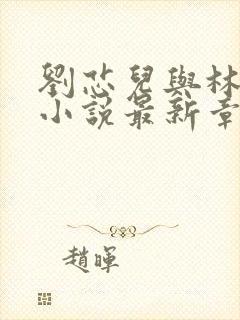 劉芯兒與林
小說最新章
趙暉